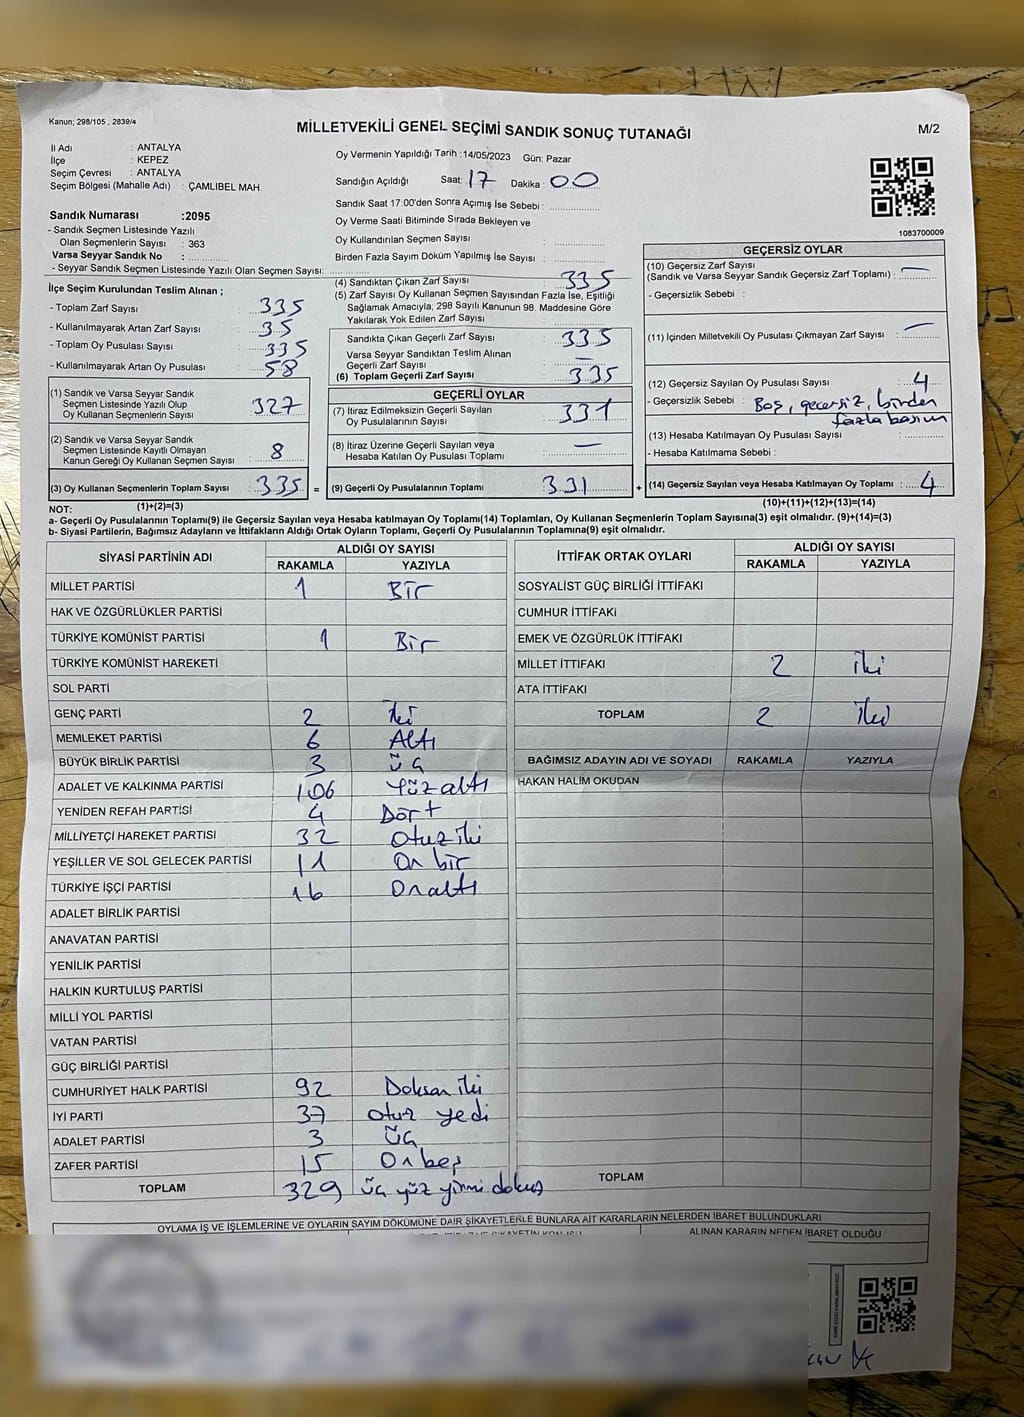 Kanun; 298/105 , 2839/4
MİLLETVEKİLİ GENEL SEÇİMİ SANDIK SONUÇ TUTANAĞI
M/2
İl Adı : ANTALYA
İlçe : KEPEZ
Seçim Çevresi : ANTALYA
Seçim Bölgesi (Mahalle Adı) : ÇAMLIBEL MAH.
Oy Vermenin Yapıldığı Tarih :14/05/2023 Gün: Pazar
Sandığın Açıldığı Saat: 17 Dakika : 00
Sandık Saat 17:00'den Sonra Açımış İse Sebebi :
Oy Verme Saati Bitiminde Sırada Bekleyen ve
Oy Kullandırılan Seçmen Sayısı :
Birden Fazla Sayım Döküm Yapılmış İse Sayısı :
1083700009
Sandık Numarası :2095
- Sandık Seçmen Listesinde Yazılı
Olan Seçmenlerin Sayısı : 363
Varsa Seyyar Sandık No :
- Seyyar Sandık Seçmen Listesinde Yazılı Olan Seçmen Sayısı:
İlçe Seçim Kurulundan Teslim Alınan ;
- Toplam Zarf Sayısı : 335
- Kullanılmayarak Artan Zarf Sayısı : 35
- Toplam Oy Pusulası Sayısı : 335
- Kullanılmayarak Artan Oy Pusulası : 58
(1) Sandık ve Varsa Seyyar Sandık
Seçmen Listesinde Yazılı Olup
Oy Kullanan Seçmenlerin Sayısı : 327
(2) Sandık ve Varsa Seyyar Sandık
Seçmen Listesinde Kayıtlı Olmayan
Kanun Gereği Oy Kullanan Seçmen Sayısı : 8
(3) Oy Kullanan Seçmenlerin Toplam Sayısı : 335 =
(1)+(2)=(3)
(4) Sandıktan Çıkan Zarf Sayısı : 335
(5) Zarf Sayısı Oy Kullanan Seçmen Sayısından Fazla İse, Eşitliği
Sağlamak Amacıyla; 298 Sayılı Kanunun 98. Maddesine Göre
Yakılarak Yok Edilen Zarf Sayısı :
Sandıkta Çıkan Geçerli Zarf Sayısı : 335
Varsa Seyyar Sandıktan Teslim Alınan
Geçerli Zarf Sayısı : —
(6) Toplam Geçerli Zarf Sayısı : 335
GEÇERLİ OYLAR
(7) İtiraz Edilmeksizin Geçerli Sayılan
Oy Pusulalarının Sayısı : 331
(8) İtiraz Üzerine Geçerli Sayılan veya
Hesaba Katılan Oy Pusulası Toplamı : —
(9) Geçerli Oy Pusulalarının Toplamı : 331 +
GEÇERSİZ OYLAR
(10) Geçersiz Zarf Sayısı
(Sandık ve Varsa Seyyar Sandık Geçersiz Zarf Toplamı) : —
- Geçersizlik Sebebi :
(11) İçinden Milletvekili Oy Pusulası Çıkmayan Zarf Sayısı : —
(12) Geçersiz Sayılan Oy Pusulası Sayısı : 4
- Geçersizlik Sebebi : Boş, geçersiz, birden
fazla basım
(13) Hesaba Katılmayan Oy Pusulası Sayısı :
- Hesaba Katılmama Sebebi :
(14) Geçersiz Sayılan veya Hesaba Katılmayan Oy Toplamı : 4
(10)+(11)+(12)+(13)=(14)
NOT:
a- Geçerli Oy Pusulalarının Toplamı(9) ile Geçersiz Sayılan veya Hesaba katılmayan Oy Toplamı(14) Toplamları, Oy Kullanan Seçmenlerin Toplam Sayısına(3) eşit olmalıdır. (9)+(14)=(3)
b- Siyasi Partilerin, Bağımsız Adayların ve İttifakların Aldığı Ortak Oyların Toplamı, Geçerli Oy Pusulalarının Toplamına(9) eşit olmalıdır.
SİYASİ PARTİNİN ADI ALDIĞI OY SAYISI
RAKAMLA YAZIYLA
MİLLET PARTİSİ 1 Bir
HAK VE ÖZGÜRLÜKLER PARTİSİ
TÜRKİYE KOMÜNİST PARTİSİ 1 Bir
TÜRKİYE KOMÜNİST HAREKETİ
SOL PARTİ
GENÇ PARTİ 2 İki
MEMLEKET PARTİSİ 6 Altı
BÜYÜK BİRLİK PARTİSİ 3 Üç
ADALET VE KALKINMA PARTİSİ 106 Yüzaltı
YENİDEN REFAH PARTİSİ 4 Dört
MİLLİYETÇİ HAREKET PARTİSİ 32 Otuziki
YEŞİLLER VE SOL GELECEK PARTİSİ 11 On bir
TÜRKİYE İŞÇİ PARTİSİ 16 Onaltı
ADALET BİRLİK PARTİSİ
ANAVATAN PARTİSİ
YENİLİK PARTİSİ
HALKIN KURTULUŞ PARTİSİ
MİLLİ YOL PARTİSİ
VATAN PARTİSİ
GÜÇ BİRLİĞİ PARTİSİ
CUMHURİYET HALK PARTİSİ 92 Doksan iki
İYİ PARTİ 37 otuz yedi
ADALET PARTİSİ 3 Üç
ZAFER PARTİSİ 15 Onbeş
TOPLAM 329 üç yüz yirmi dokuz
İTTİFAK ORTAK OYLARI ALDIĞI OY SAYISI
RAKAMLA YAZIYLA
SOSYALİST GÜÇ BİRLİĞİ İTTİFAKI
CUMHUR İTTİFAKI
EMEK VE ÖZGÜRLÜK İTTİFAKI
MİLLET İTTİFAKI 2 iki
ATA İTTİFAKI
TOPLAM 2 iki
BAĞIMSIZ ADAYIN ADI VE SOYADI RAKAMLA YAZIYLA
HAKAN HALİM OKUDAN
TOPLAM
OYLAMA İŞ VE İŞLEMLERİNE VE OYLARIN SAYIM DÖKÜMÜNE DAİR ŞİKAYETLERLE BUNLARA AİT KARARLARIN NELERDEN İBARET BULUNDUKLARI
ALINAN KARARIN NEDEN İBARET OLDUĞU